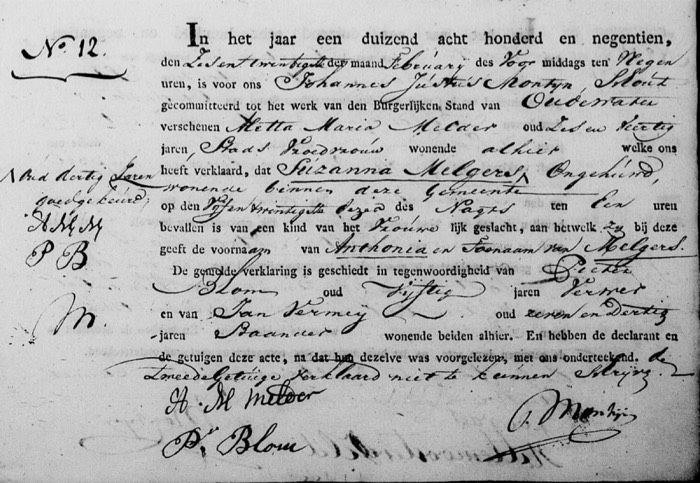 N.º 12.
In het jaar een duizend acht honderd en negentien,
den Zes en twintigste der maand February des Voor middags ten Negen
uren, is voor ons Johannes Justus Montyn Schout
gecommitteerd tot het werk van den Burgerlijken Stand van Oudewater
verschenen Metta Maria Melder oud Zes en Veertig
jaren, Stads Vroedvrouw wonende alhier welke ons
heeft verklaard, dat Suzanna Melgers, Ongehuwd,
wonende binnen deze Gemeente
op den Vijfentwintigste dezer des Nagts ten Een uren
bevallen is van een kind van het Vrouwe lijk geslacht, aan hetwelk zy bij deze
geeft de voornaam van Anthonia en Toenaam van Melgers.
De gemelde verklaring is geschied in tegenwoordigheid van Pieter
Blom oud Vijftig jaren Verwer
en van Jan Vermey oud zeven en Dertig
jaren wonende beiden alhier. En hebben de declarant en
de getuigen deze acte, na dat hun dezelve was voorgelezen, met ons onderteekend. de
tweede Getuige verklaard niet te kunnen Schryv.
Oud dertig Jaren
goedgekeurd;
A M M
P B
M.
A. M Melder
Pr. Blom
J. Montijn